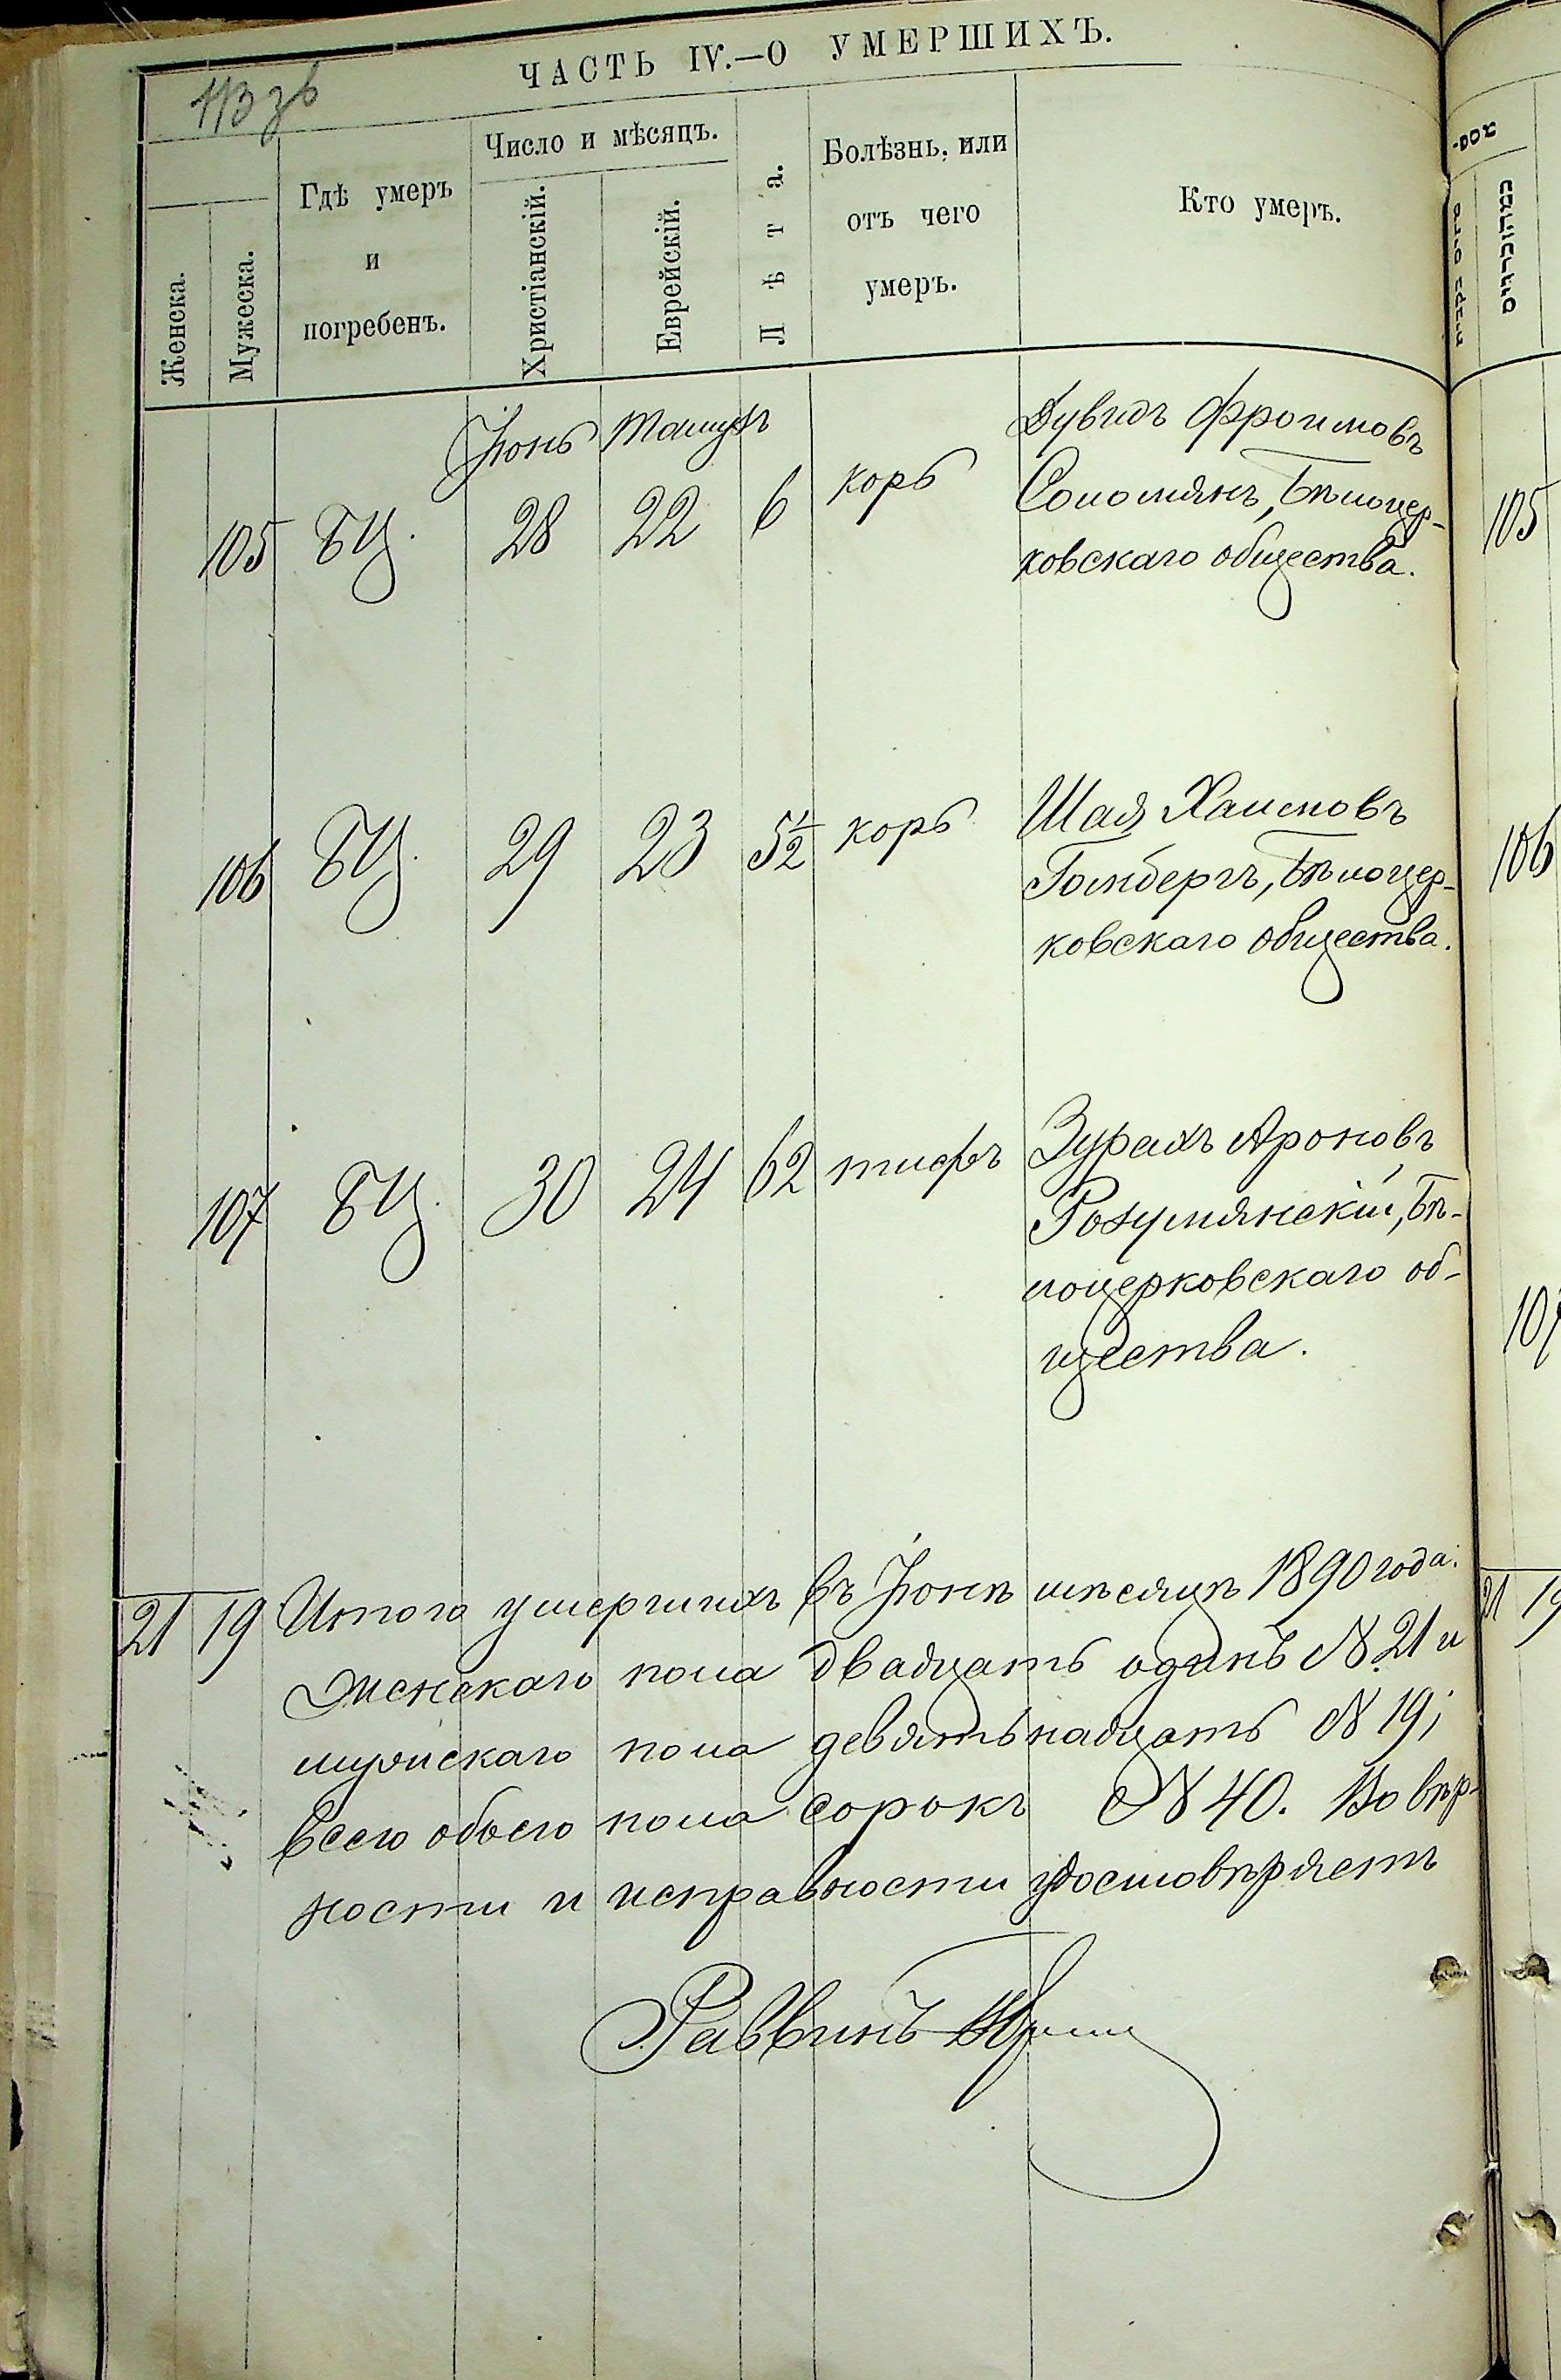 ЧАСТЬ IV.—О УМЕРШИХЪ.
113 зв
Женска.
Мужеска.
Гдѣ умеръ
и
погребенъ.
Число и мѣсяцъ.
Христіанскій.
Еврейскій.
Лѣта.
Болѣзнь, или
отъ чего
умеръ.
Кто умеръ.
Іюнь Тамузъ
105 БЦ. 28 22 6 корь Дувидъ Фроимовъ
Соломянъ, Бѣлоцер-
ковскаго общества.
105
106 БЦ. 29 23 5½ корь Шая Хаимовъ
Голдбергъ, Бѣлоцер-
ковскаго общества.
106
107 БЦ. 30 24 62 тифъ Зурахъ Ароновъ
Розумянскій, Бѣ-
лоцерковскаго об-
щества.
107
21 19 Итого умершихъ въ Іюнѣ мѣсяцѣ 1890 года:
женскаго пола двадцать одинъ № 21 и
мужскаго пола девятьнадцать № 19;
всего обоего пола сорокъ № 40. Во вѣр-
ности и исправности удостовѣряетъ
Раввинъ
21 19